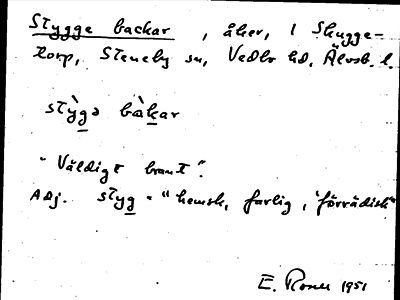 Stygge backar, åker, i Skugge-
torp, Steneby sn, Vedbo hd, Älvsb. l.
stỳgə bàkar
"Väldigt brant".
Adj. styg = "hemsk, farlig, "förrädisk"
E. Rosell 1951